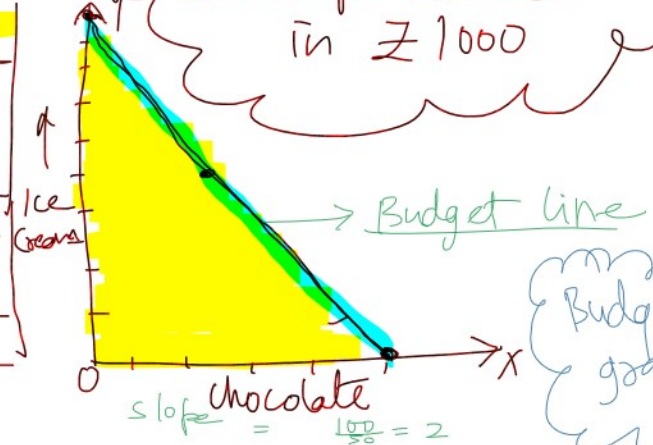 y
in Z 1000
Ice
Creams
Budget line
Budg
gra
0
x
chocolate
slope = 100/50 = 2